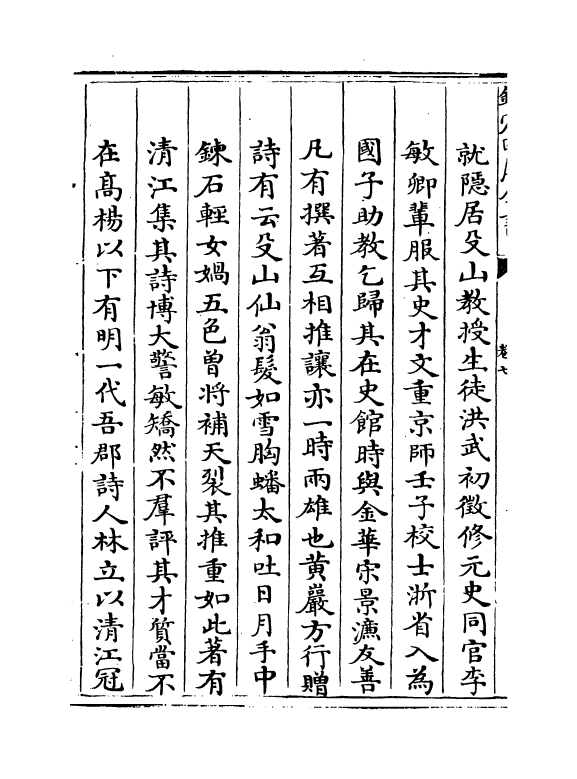 就隠居殳山教授生徒洪武初徴修元史同官李
敏卿輩服其史才文重京師壬子校士浙省入為
國子助教乞歸其在史館時與金華宋景濂友善
凡有撰著互相推讓亦一時兩雄也黄巖方行贈
詩有云殳山仙翁髮如雪胸蟠太和吐日月手中
鍊石輕女媧五色曽將補天裂其推重如此著有
清江集其詩博大警敏矯然不羣評其才質當不
在髙楊以下有明一代吾郡詩人林立以清江冠
卷七